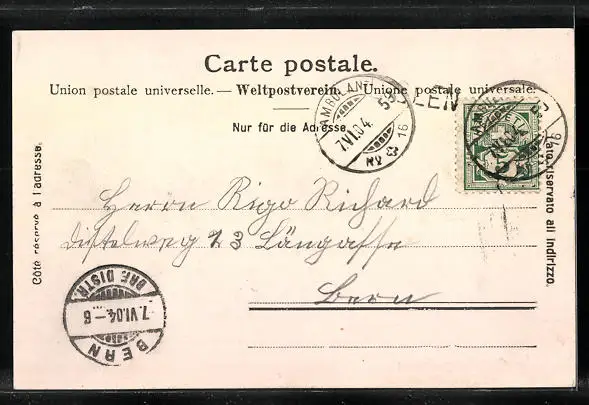 Carte postale.
Union postale universelle. — Weltpostverein. — Unione postale universale.
Nur für die Adresse.
Côté réservé à l'adresse.
Lato riservato all indirizzo.
AMBULANT
7.VI.04
No
16
LEN
AMBULANT
HELVETIA
Herrn Rigo Richard
Distelweg 13 Länggasse
Bern
BERN
7.VI.04.-6
BRF. DISTR.